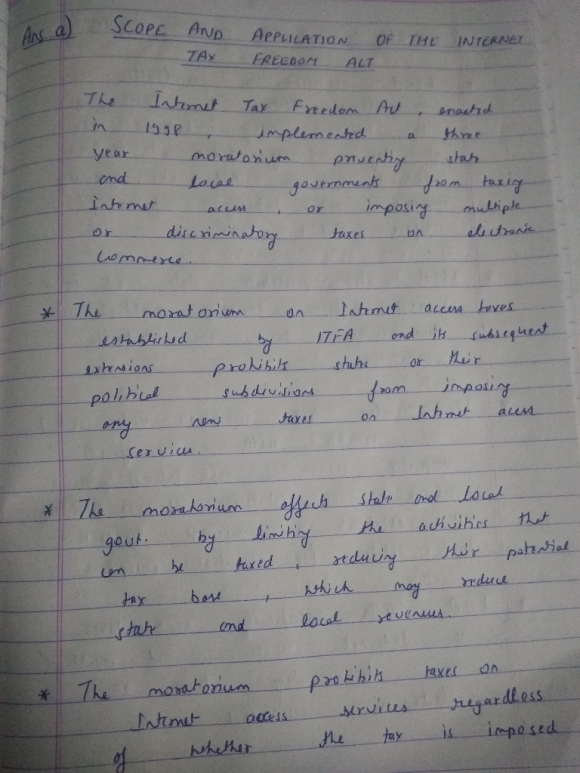 Ans a) SCOPE AND APPLICATION OF THE INTERNET
TAX FREEDOM ACT
The Internet Tax Freedom Act, enacted
in 1998, implemented a three
year moratorium preventing state
and local governments from taxing
Internet access, or imposing multiple
or discriminatory taxes on electronic
Commerce.
* The moratorium on Internet access taxes
established by ITFA and its subsequent
extensions prohibits states or their
political subdivisions from imposing
any new taxes on Internet acess
services.
* The moratorium affects state and local
govt. by limiting the activities that
can be taxed, reducing their potential
tax base, which may reduce
state and local revenues.
* The moratorium prohibits taxes on
Internet access services regardless
of whether the tax is imposed